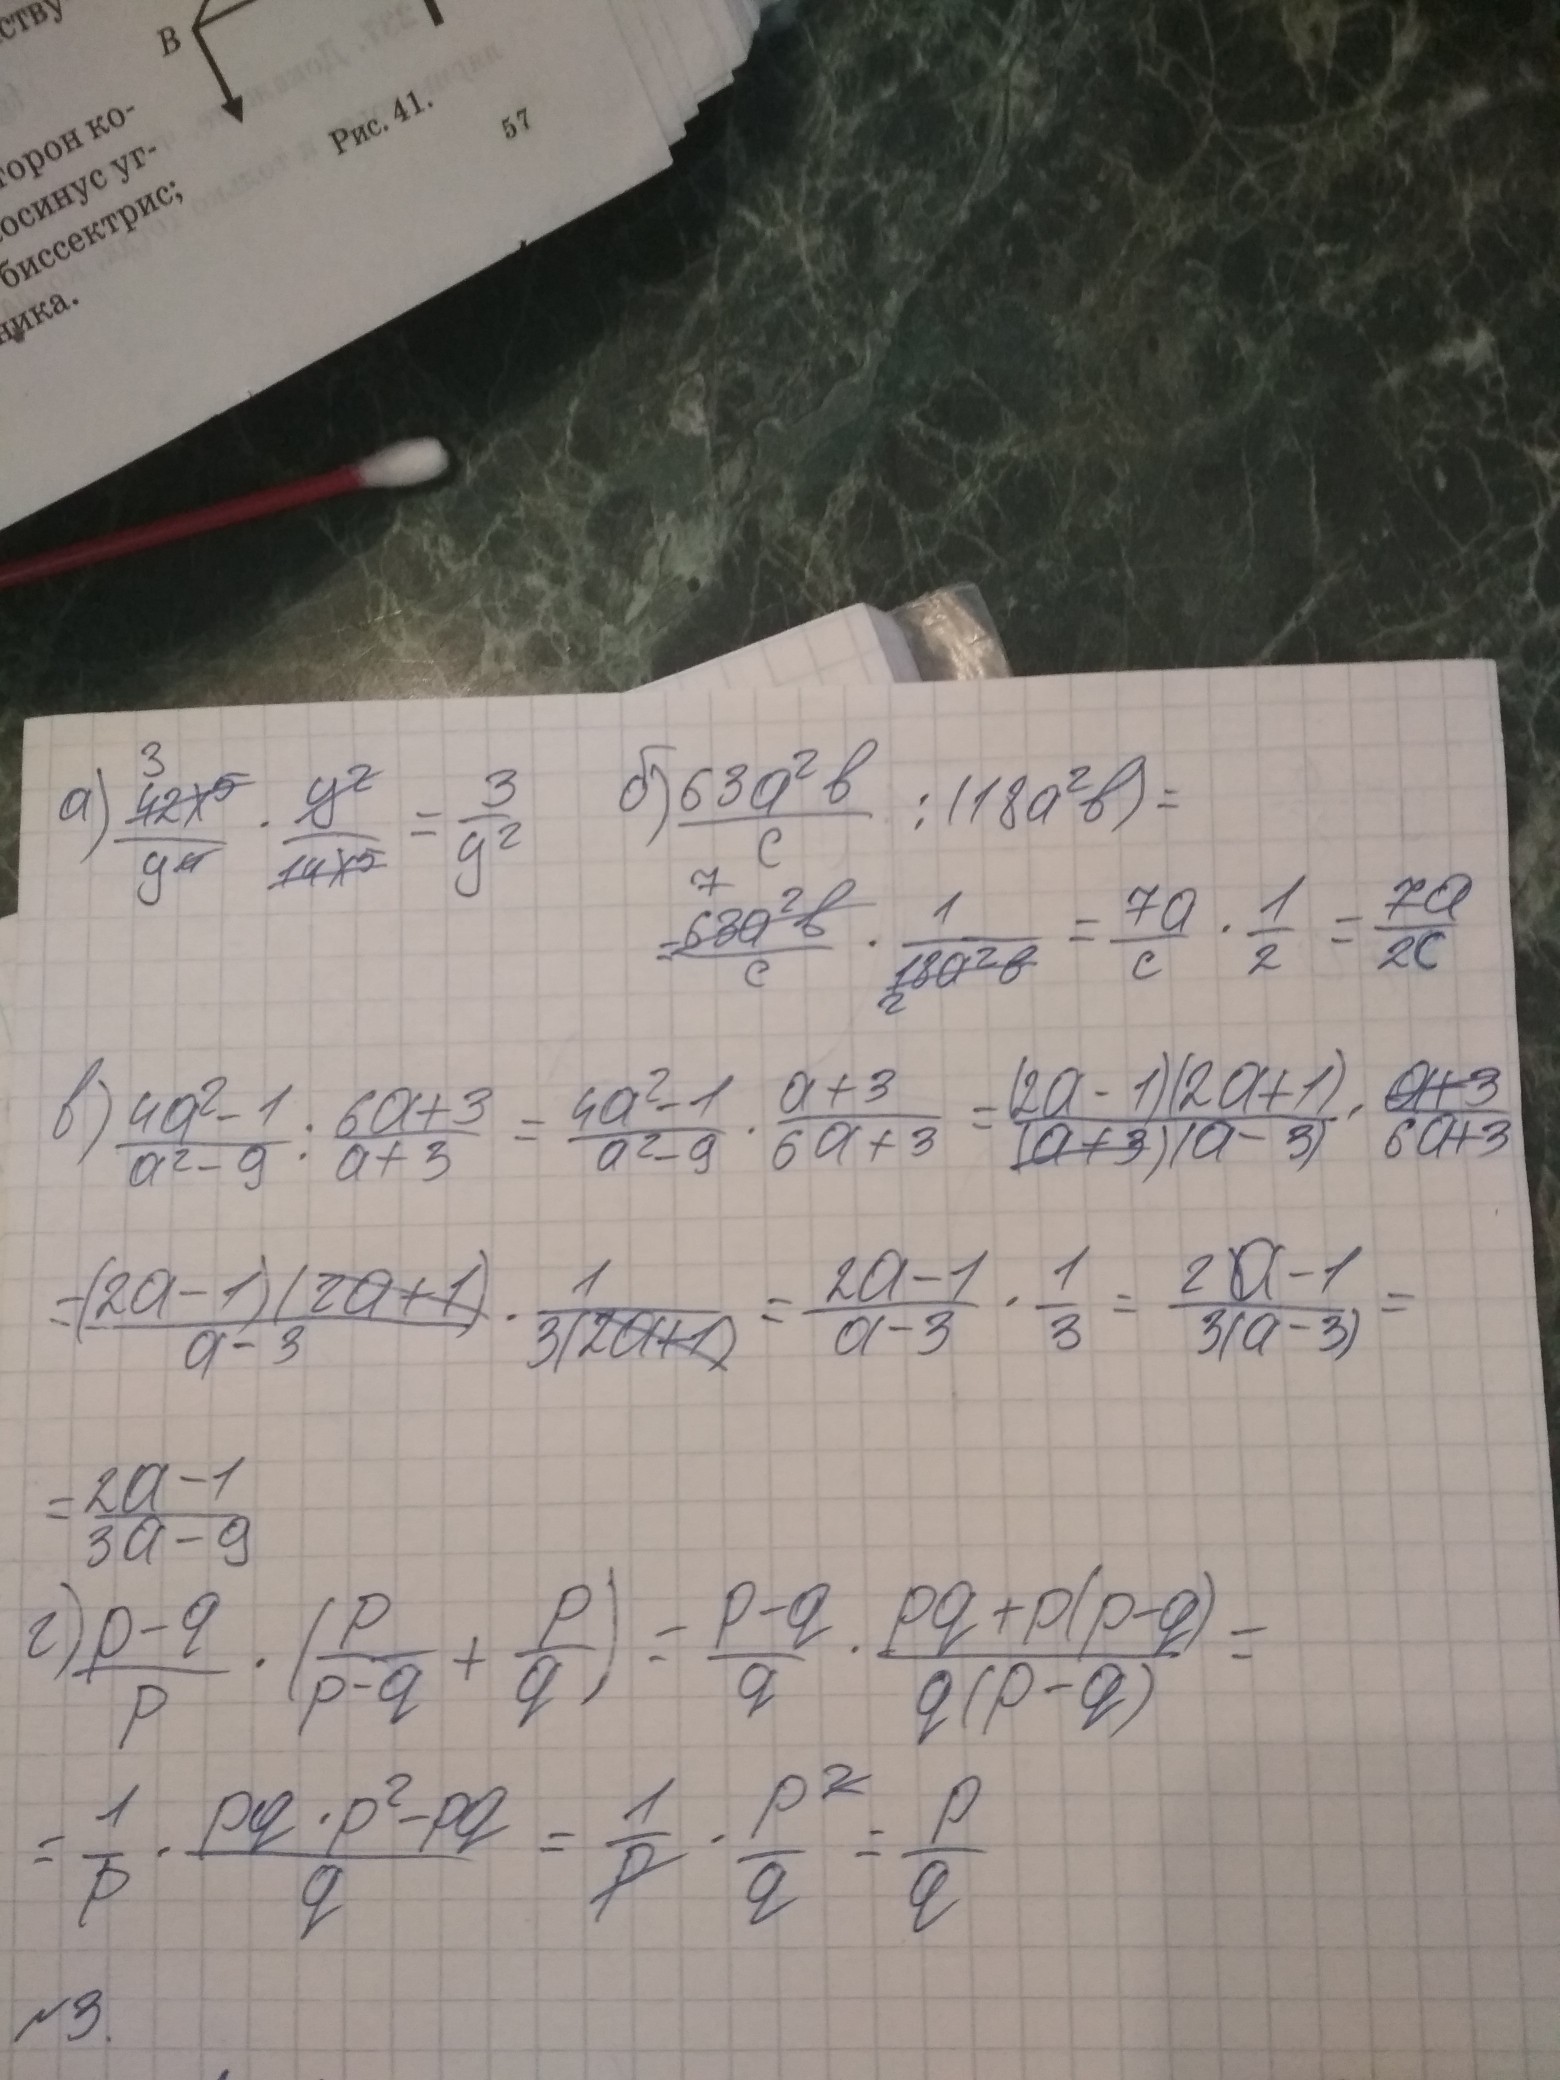 ству
B
Рис. 41.
57
торон ко-
осинус уг-
биссектрис;
ника.
а) 42x⁵/y⁴ · y²/14x⁵ = 3/y²
3
б) 63a²b/c : (18a²b) =
= 63a²b/c · 1/18a²b = 7a/c · 1/2 = 7a/2c
7
2
в) 4a²-1/a²-9 : 6a+3/a+3 = 4a²-1/a²-9 · a+3/6a+3 = (2a-1)(2a+1)/(a+3)(a-3) · a+3/6a+3
= (2a-1)(2a+1)/a-3 · 1/3(2a+1) = 2a-1/a-3 · 1/3 = 2a-1/3(a-3) =
= 2a-1/3a-9
г) p-q/p · (p/p-q + p/q) = p-q/q · pq+p(p-q)/q(p-q) =
= 1/p · pq·p²-pq/q = 1/p · p²/q = p/q
№3.